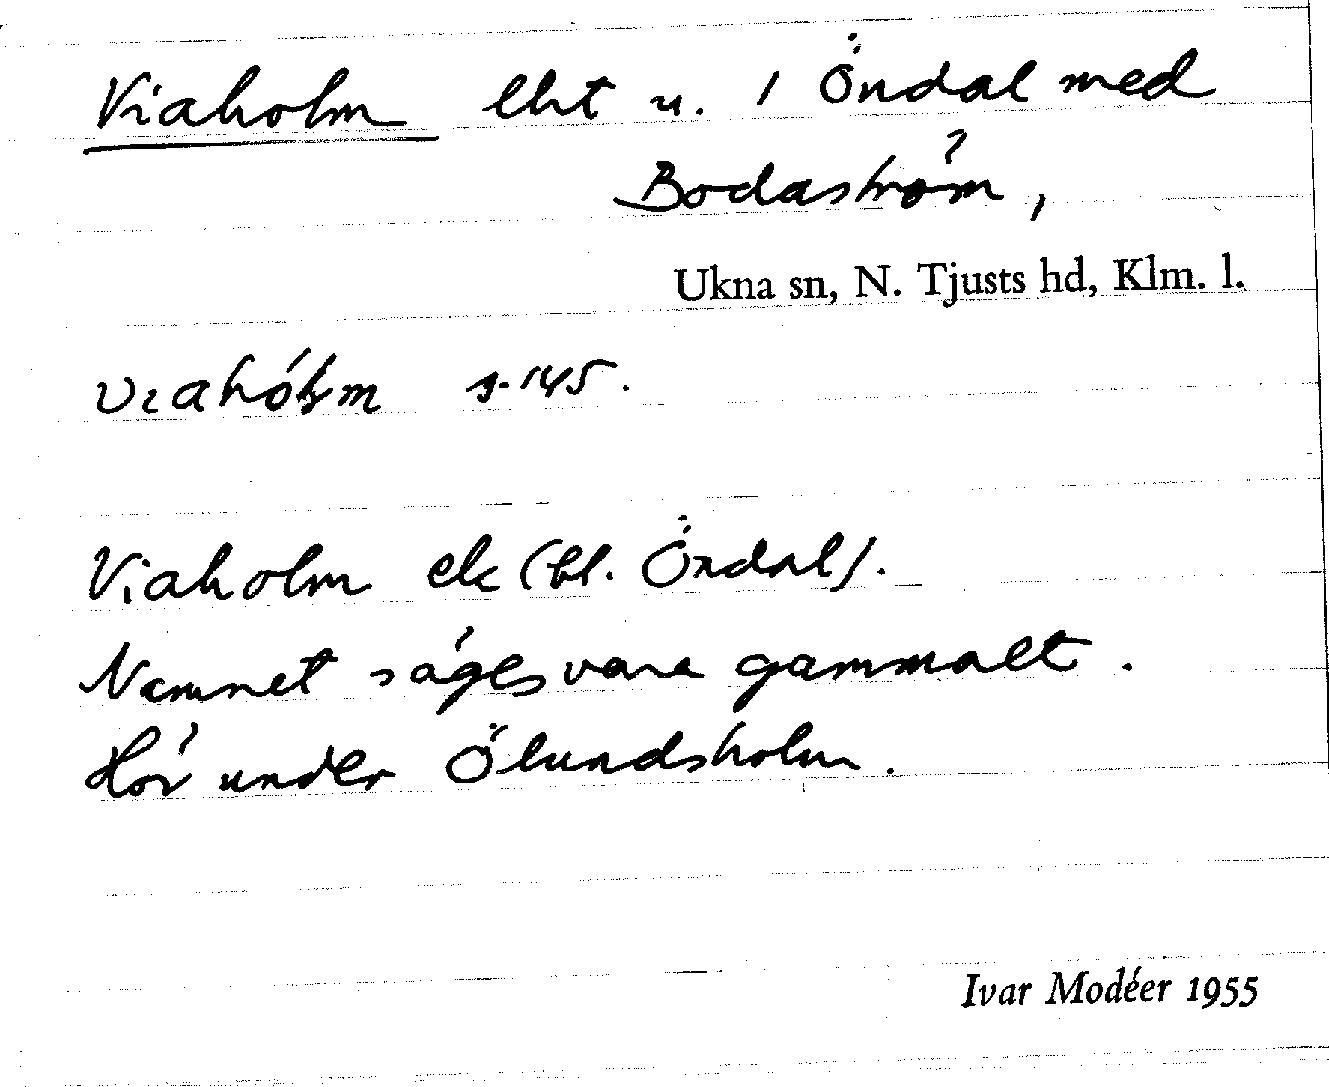 Viaholm lht u. 1 Öndal med
Bodaström,
Ukna sn, N. Tjusts hd, Klm. l.
s. 145.
Viaholm ek (bl. Öndal).
Namnet säges vara gammalt.
Hör under Ölundsholm.
Ivar Modéer 1955